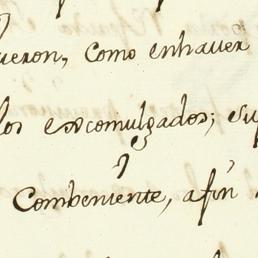 ueron, como enhaver
los excomulgados; su
Combeniente, afin